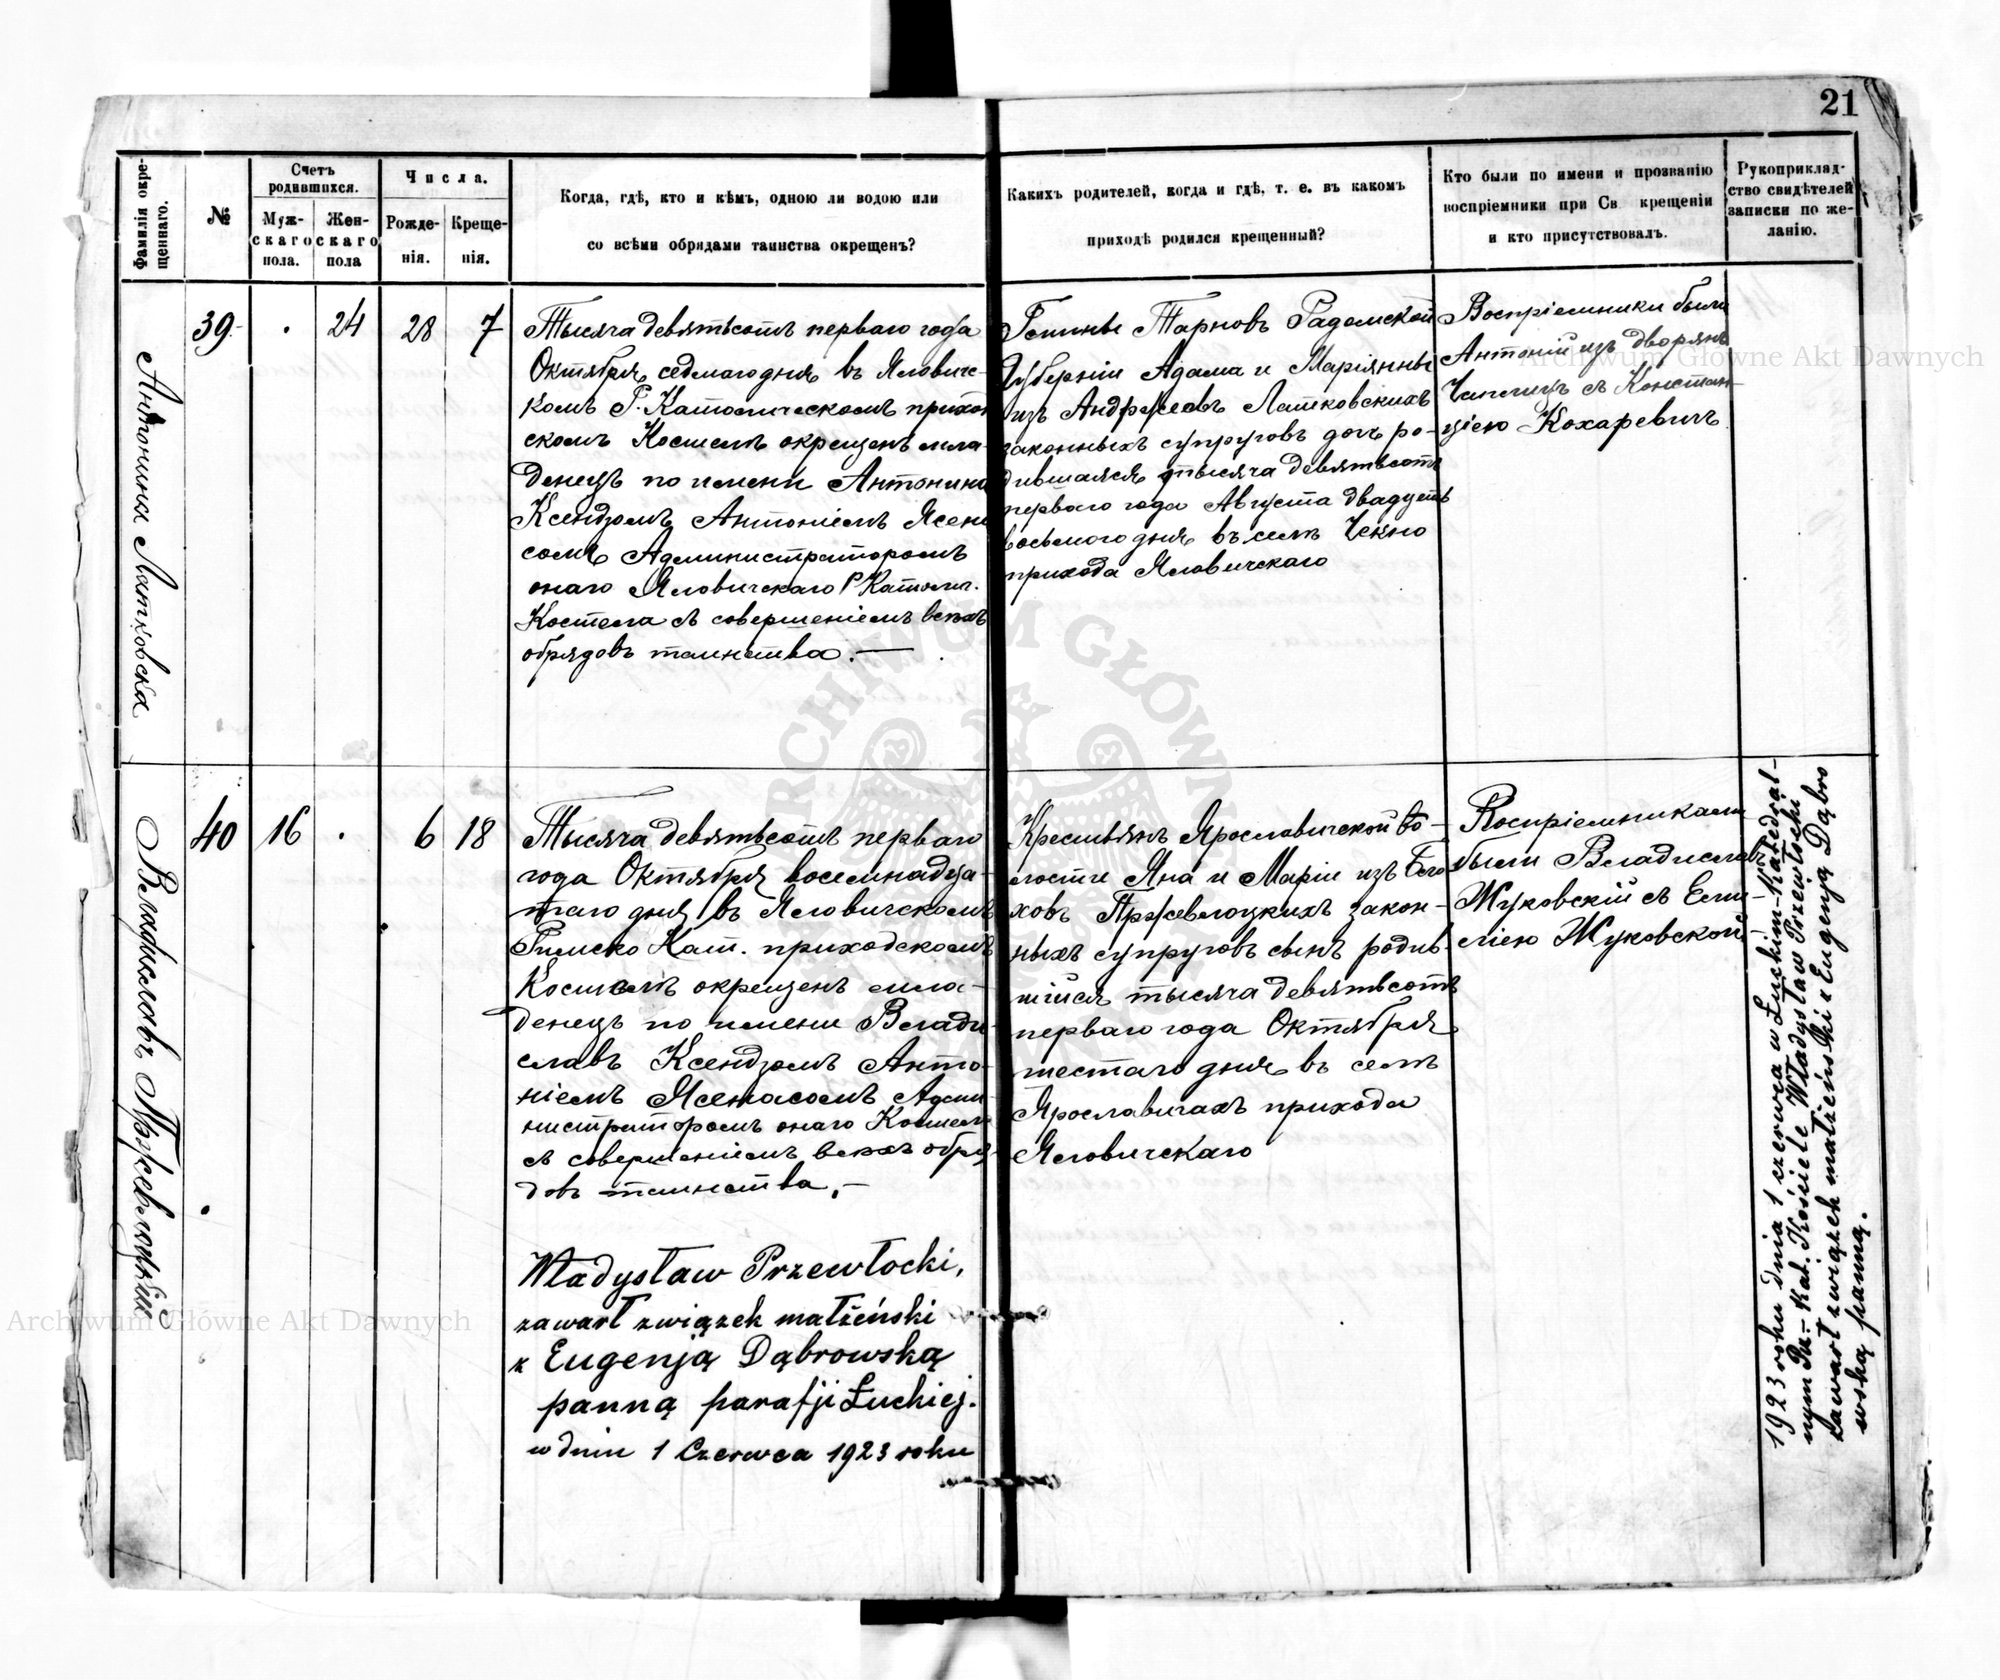 21
Фамилія окре-
щеннаго.
№
Счетъ
родившихся.
Муж-
скаго
пола.
Жен-
скаго
пола
Числа.
Рожде-
нія.
Креще-
нія.
Когда, гдѣ, кто и кѣмъ, одною ли водою или
со всѣми обрядами таинства окрещенъ?
Какихъ родителей, когда и гдѣ, т. е. въ какомъ
приходѣ родился крещенный?
Кто были по имени и прозванію
воспріемники при Св. крещеніи
и кто присутствовалъ.
Рукоприклад-
ство свидѣтелей
записки по же-
ланію.
Антонина Латковска
39
24
28
7
Тысяча девятьсотъ перваго года
Октября седмаго дня въ Яловичс-
комъ Р. Католическомъ прихо
скомъ Костелѣ окрещенъ мла-
денецъ по имени Антонина
Ксендзомъ Антоніемъ Ясена
сомъ Администраторомъ
онаго Яловичскаго Р Католич.
Костела съ совершеніемъ всѣхъ
обрядовъ таинства. —
Гмины Тарновъ Радомской
Губерніи Адама и Маріянны
изъ Андржеевъ Латковскихъ
законныхъ супруговъ дочь ро-
дившаяся тысяча девятьсотъ
перваго года Августа двадцать
восьмого дня въ селѣ Чекно
прихода Яловичскаго
Воспріемники были
Антоній изъ дворянъ
Чаплицъ съ Констан-
ціею Кохаревичъ
Владиславъ Пржевлоцкій
40
16
6
18
Тысяча девятьсотъ перваго
года Октября восемнадца-
таго дня въ Яловичскомъ
Римско Кат. приходскомъ
Костелѣ окрещенъ мла-
денецъ по имени Влади-
славъ Ксендзомъ Анто-
ніемъ Ясенасомъ Адми
нистраторомъ онаго Костела
съ совершеніемъ всѣхъ обря
довъ таинства. —
Władysław Przewłocki,
zawarł związek małżeński
z Eugenją Dąbrowską
panną parafji Łuckiej.
w dniu 1 Czerwca 1923 roku
Крестьянъ Ярославичской во-
лости Яна и Маріи изъ
ховъ Пржевлоцкихъ закон-
ныхъ супруговъ сынъ родив-
шійся тысяча девятьсотъ
перваго года Октября
шестаго дня въ селѣ
Ярославичахъ прихода
Яловичскаго
Воспріемниками
были Владиславъ
Жуковскій съ Еми-
ліею Жуковской
1923 roku dnia 1 czerwca w Łuckim-Katedral-
nym Rz.-Kat. Kościele Władysław Przewłocki
zawarł związek małżeński z Eugenją Dąbro
wską panną.
Archiwum Główne Akt Dawnych
Archiwum Główne Akt Dawnych
ARCHIWUM GŁÓWNE